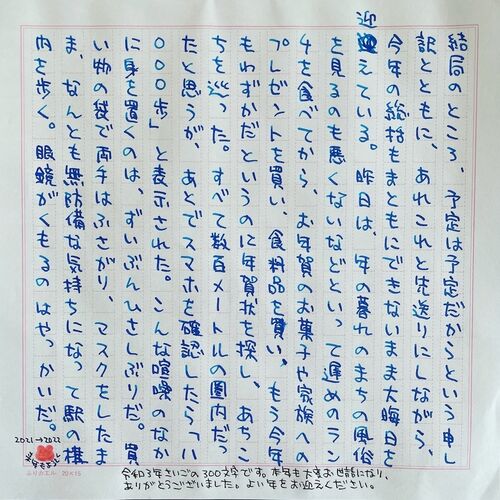 結局のところ、予定は予定だからという申し
訳とともに、あれこれと先送りにしながら、
今年の総括もまともにできないまま大晦日を
迎えている。昨日は、年の暮れのまちの風俗
を見るのも悪くないなどといって遅めのラン
チを食べてから、お年賀のお菓子や家族への
プレゼントを買い、食料品を買い、もう今年
もわずかだというのに年賀状を探し、あちこ
ちを巡った。すべて数百メートルの圏内だっ
たと思うが、あとでスマホを確認したら「八
〇〇〇歩」と表示された。こんな喧噪のなか
に身を置くのは、ずいぶんひさしぶりだ。買
い物の袋で両手はふさがり、マスクをしたま
ま、なんとも無防備な気持ちになって駅の構
内を歩く。眼鏡がくもるのはやっかいだ。
2021→2022
ふりカエル 20×15
令和3年さいごの300文字です。本年も大変お世話になり、
ありがとうございました。よい年をお迎えください。